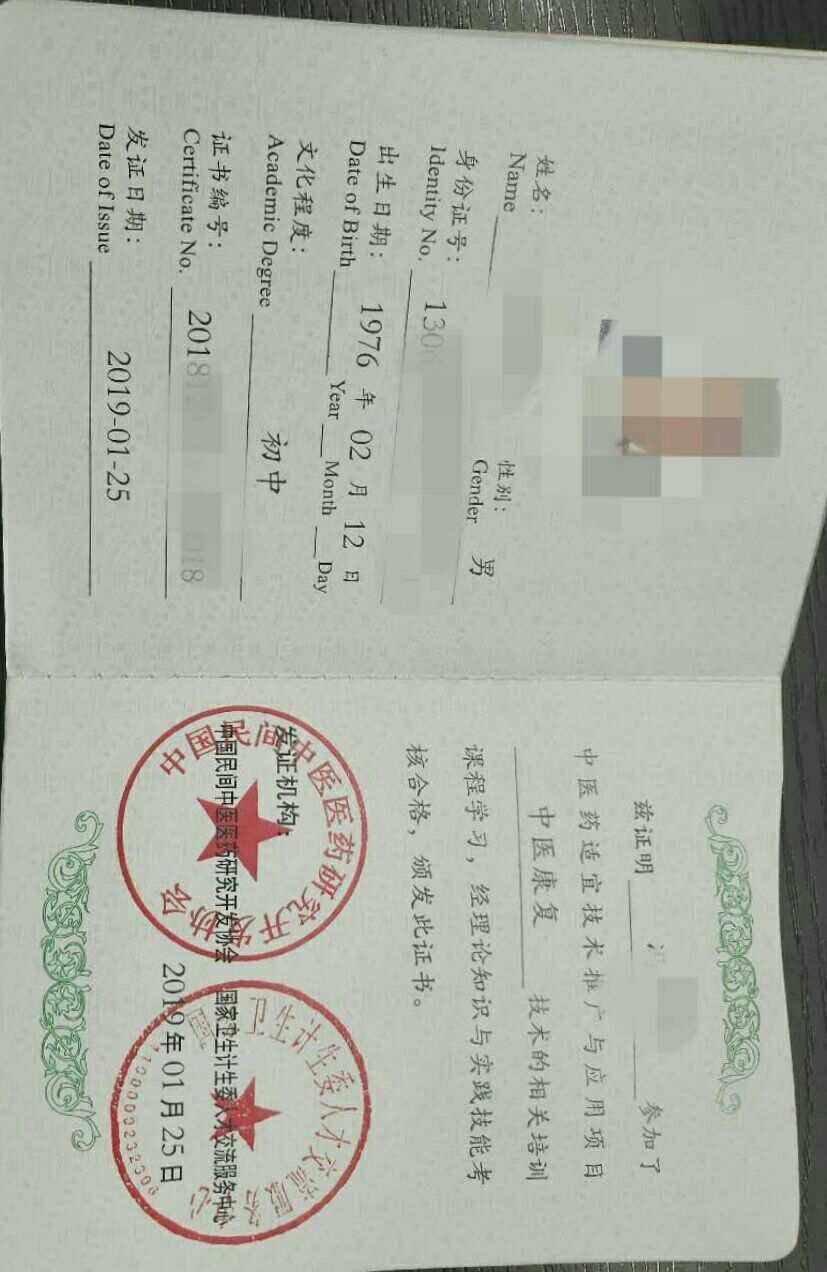 姓名：
Name
性别：
Gender
男
身份证号：
Identity No.
130
出生日期：
Date of Birth
1976 年 02 月 12 日
Year Month Day
文化程度：
Academic Degree
初中
证书编号：
Certificate No.
2018
018
发证日期：
Date of Issue
2019-01-25
兹证明 参加了
中医药适宜技术推广与应用项目
中医康复 技术的相关培训
课程学习，经理论知识与实践技能考
核合格，颁发此证书。
发证机构：
中国民间中医医药研究开发协会 国家卫生计生委人才交流服务中心
2019年01月25日
中国民间中医医药研究开发协会